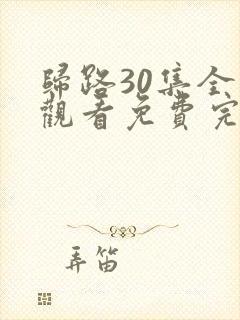 歸路30集全
觀看免費完
弄笛